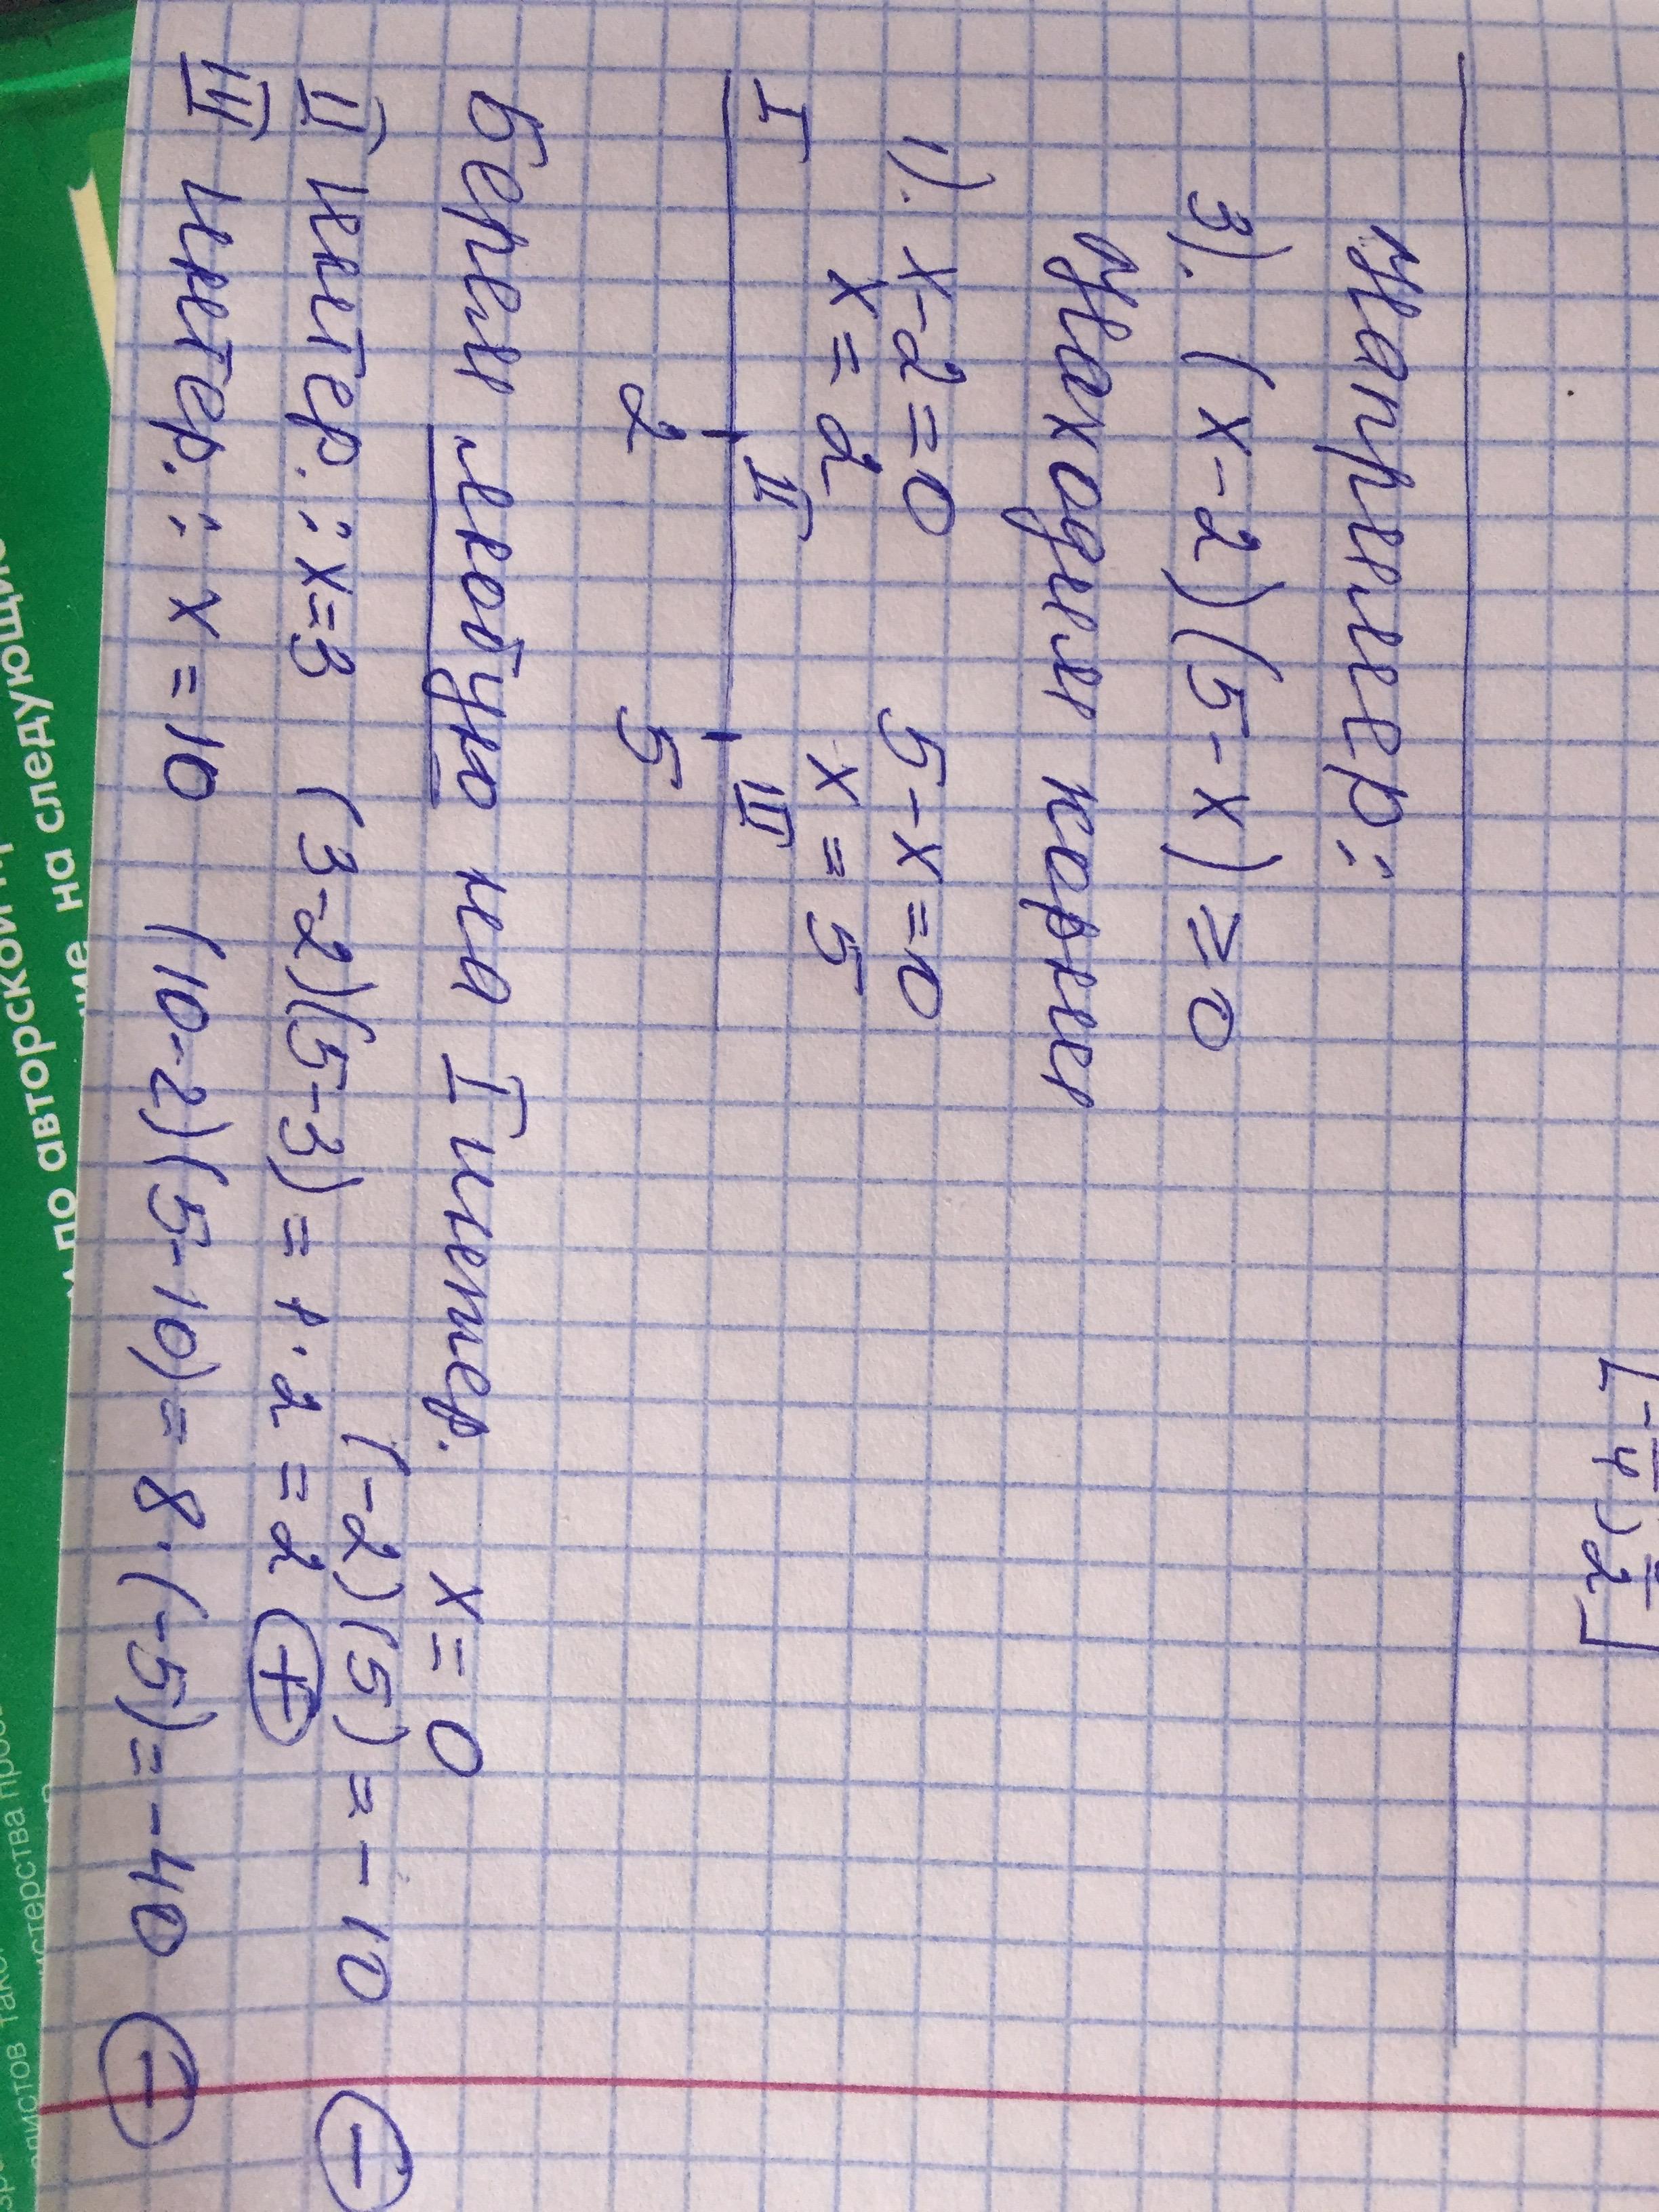 [-π/4; π/2]
Например:
3). (x-2)(5-x) ≥ 0
Находим корни
1). x-2=0 5-x=0
x=2 x=5
I II III
2 5
Берем любую на I интер. x=0
(-2)(5)=-10 (-)
II интер.: x=3 (3-2)(5-3)=1·2=2 (+)
III интер.: x=10 (10-2)(5-10)=8·(-5)=-40 (-)
по авторской
на следующие